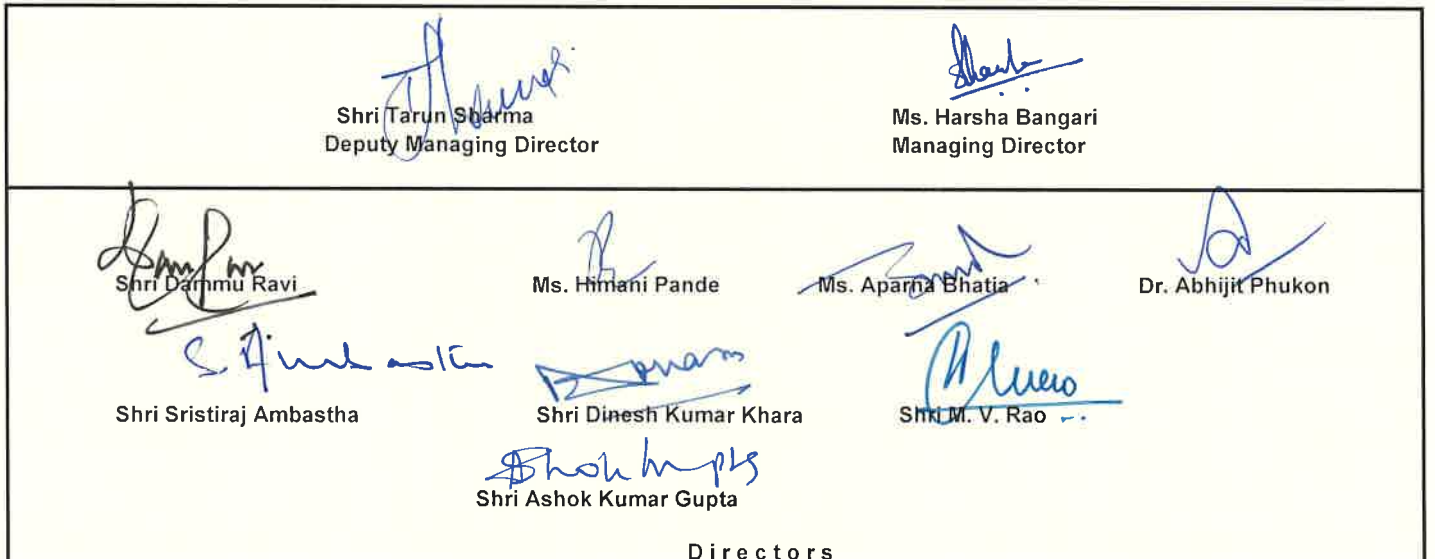 Shri Tarun Sharma
Deputy Managing Director
Ms. Harsha Bangari
Managing Director
Shri Dammu Ravi
Ms. Himani Pande
Ms. Aparna Bhatia
Dr. Abhijit Phukon
S. Ambastha
Shri Sristiraj Ambastha
Shri Dinesh Kumar Khara
Shri M. V. Rao
Shri Ashok Kumar Gupta
Directors